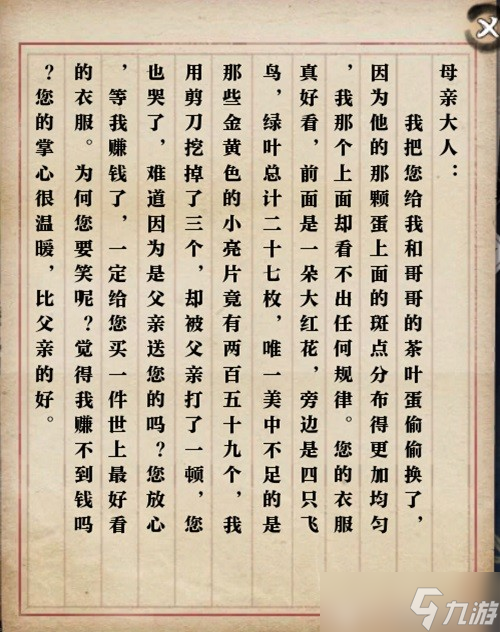 母亲大人：
我把您给我和哥哥的茶叶蛋偷偷换了，
因为他的那颗蛋上面的斑点分布得更加均匀
，我那个上面却看不出任何规律。您的衣服
真好看，前面是一朵大红花，旁边是四只飞
鸟，绿叶总计二十七枚，唯一美中不足的是
那些金黄色的小亮片竟有两百五十九个，我
用剪刀挖掉了三个，却被父亲打了一顿，您
也哭了，难道因为是父亲送您的吗？您放心
，等我赚钱了，一定给您买一件世上最好看
的衣服。为何您要笑呢？觉得我赚不到钱吗
？您的掌心很温暖，比父亲的好。
九游